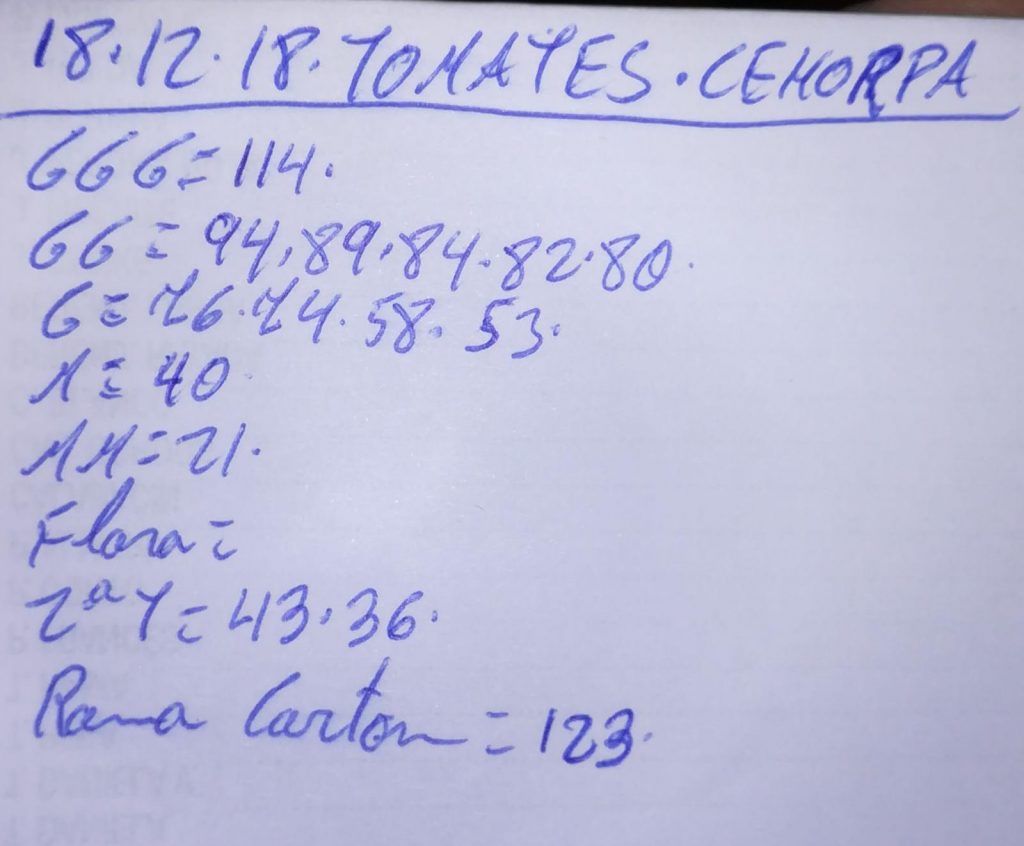 18.12.18. TOMATES. CEHORPA
GGG = 114.
GG = 94.89.84.82.80.
G = 76.74.58.53.
M = 40.
MM = 21.
Flora =
2ª T = 43.36.
Rama Carton = 123.